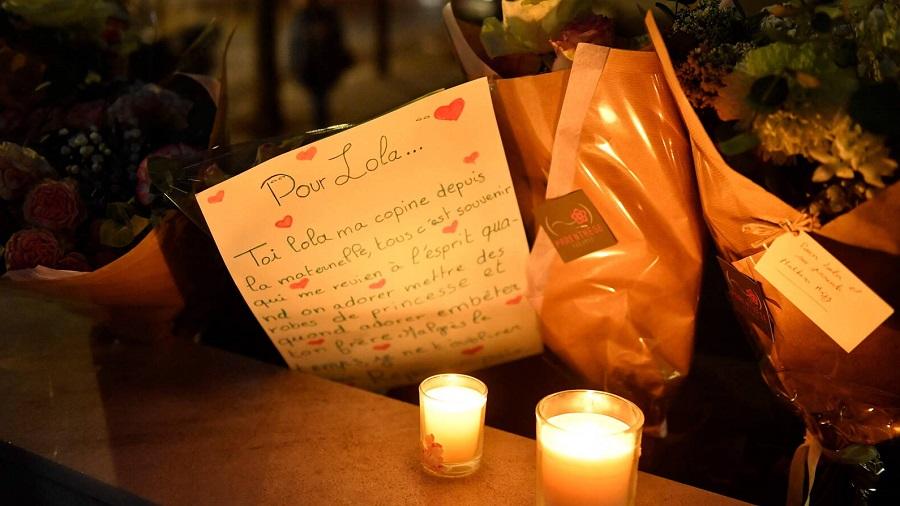 Pour Lola...
Toi Lola ma copine depuis
la maternelle, tous c'est souvenir
qui me revien à l'esprit qua-
nd on adorer mettre des
robes de princesse et
quand adorer embêter
ton frère Malgrès le
temps, je ne t'oublierai
Pour Lola et